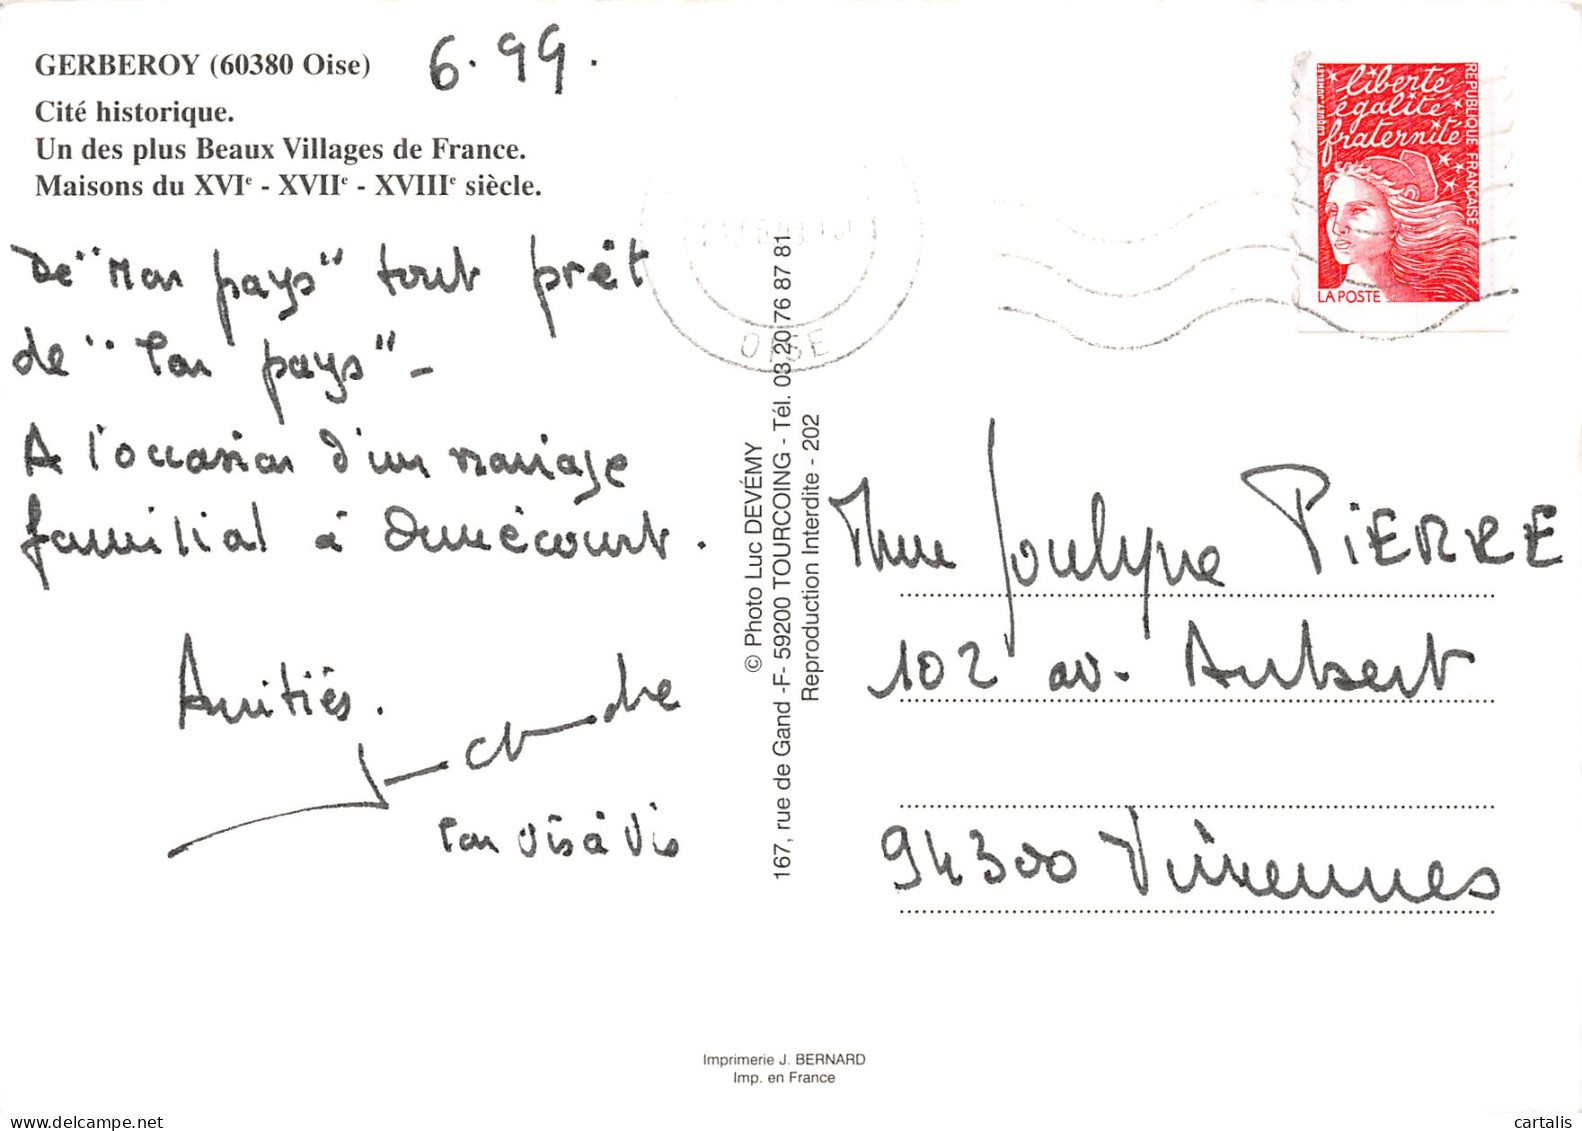 GERBEROY (60380 Oise)
6.99.
Cité historique.
Un des plus Beaux Villages de France.
Maisons du XVIe - XVIIe - XVIIIe siècle.
De "Mon pays" tout prêt
de "Ton pays" -
A l'occasion d'un mariage
familial à Omécourt.
Amitiés.
Ton vis à vis
OISE
© Photo Luc DEVÉMY
167, rue de Gand -F- 59200 TOURCOING - Tél. 03 20 76 87 81
Reproduction Interdite - 202
liberté
égalité
fraternité
RÉPUBLIQUE FRANÇAISE
LA POSTE
Mme Joulyne PIERRE
102 av. Aubert
94300 Vincennes
Imprimerie J. BERNARD
Imp. en France
cartalis